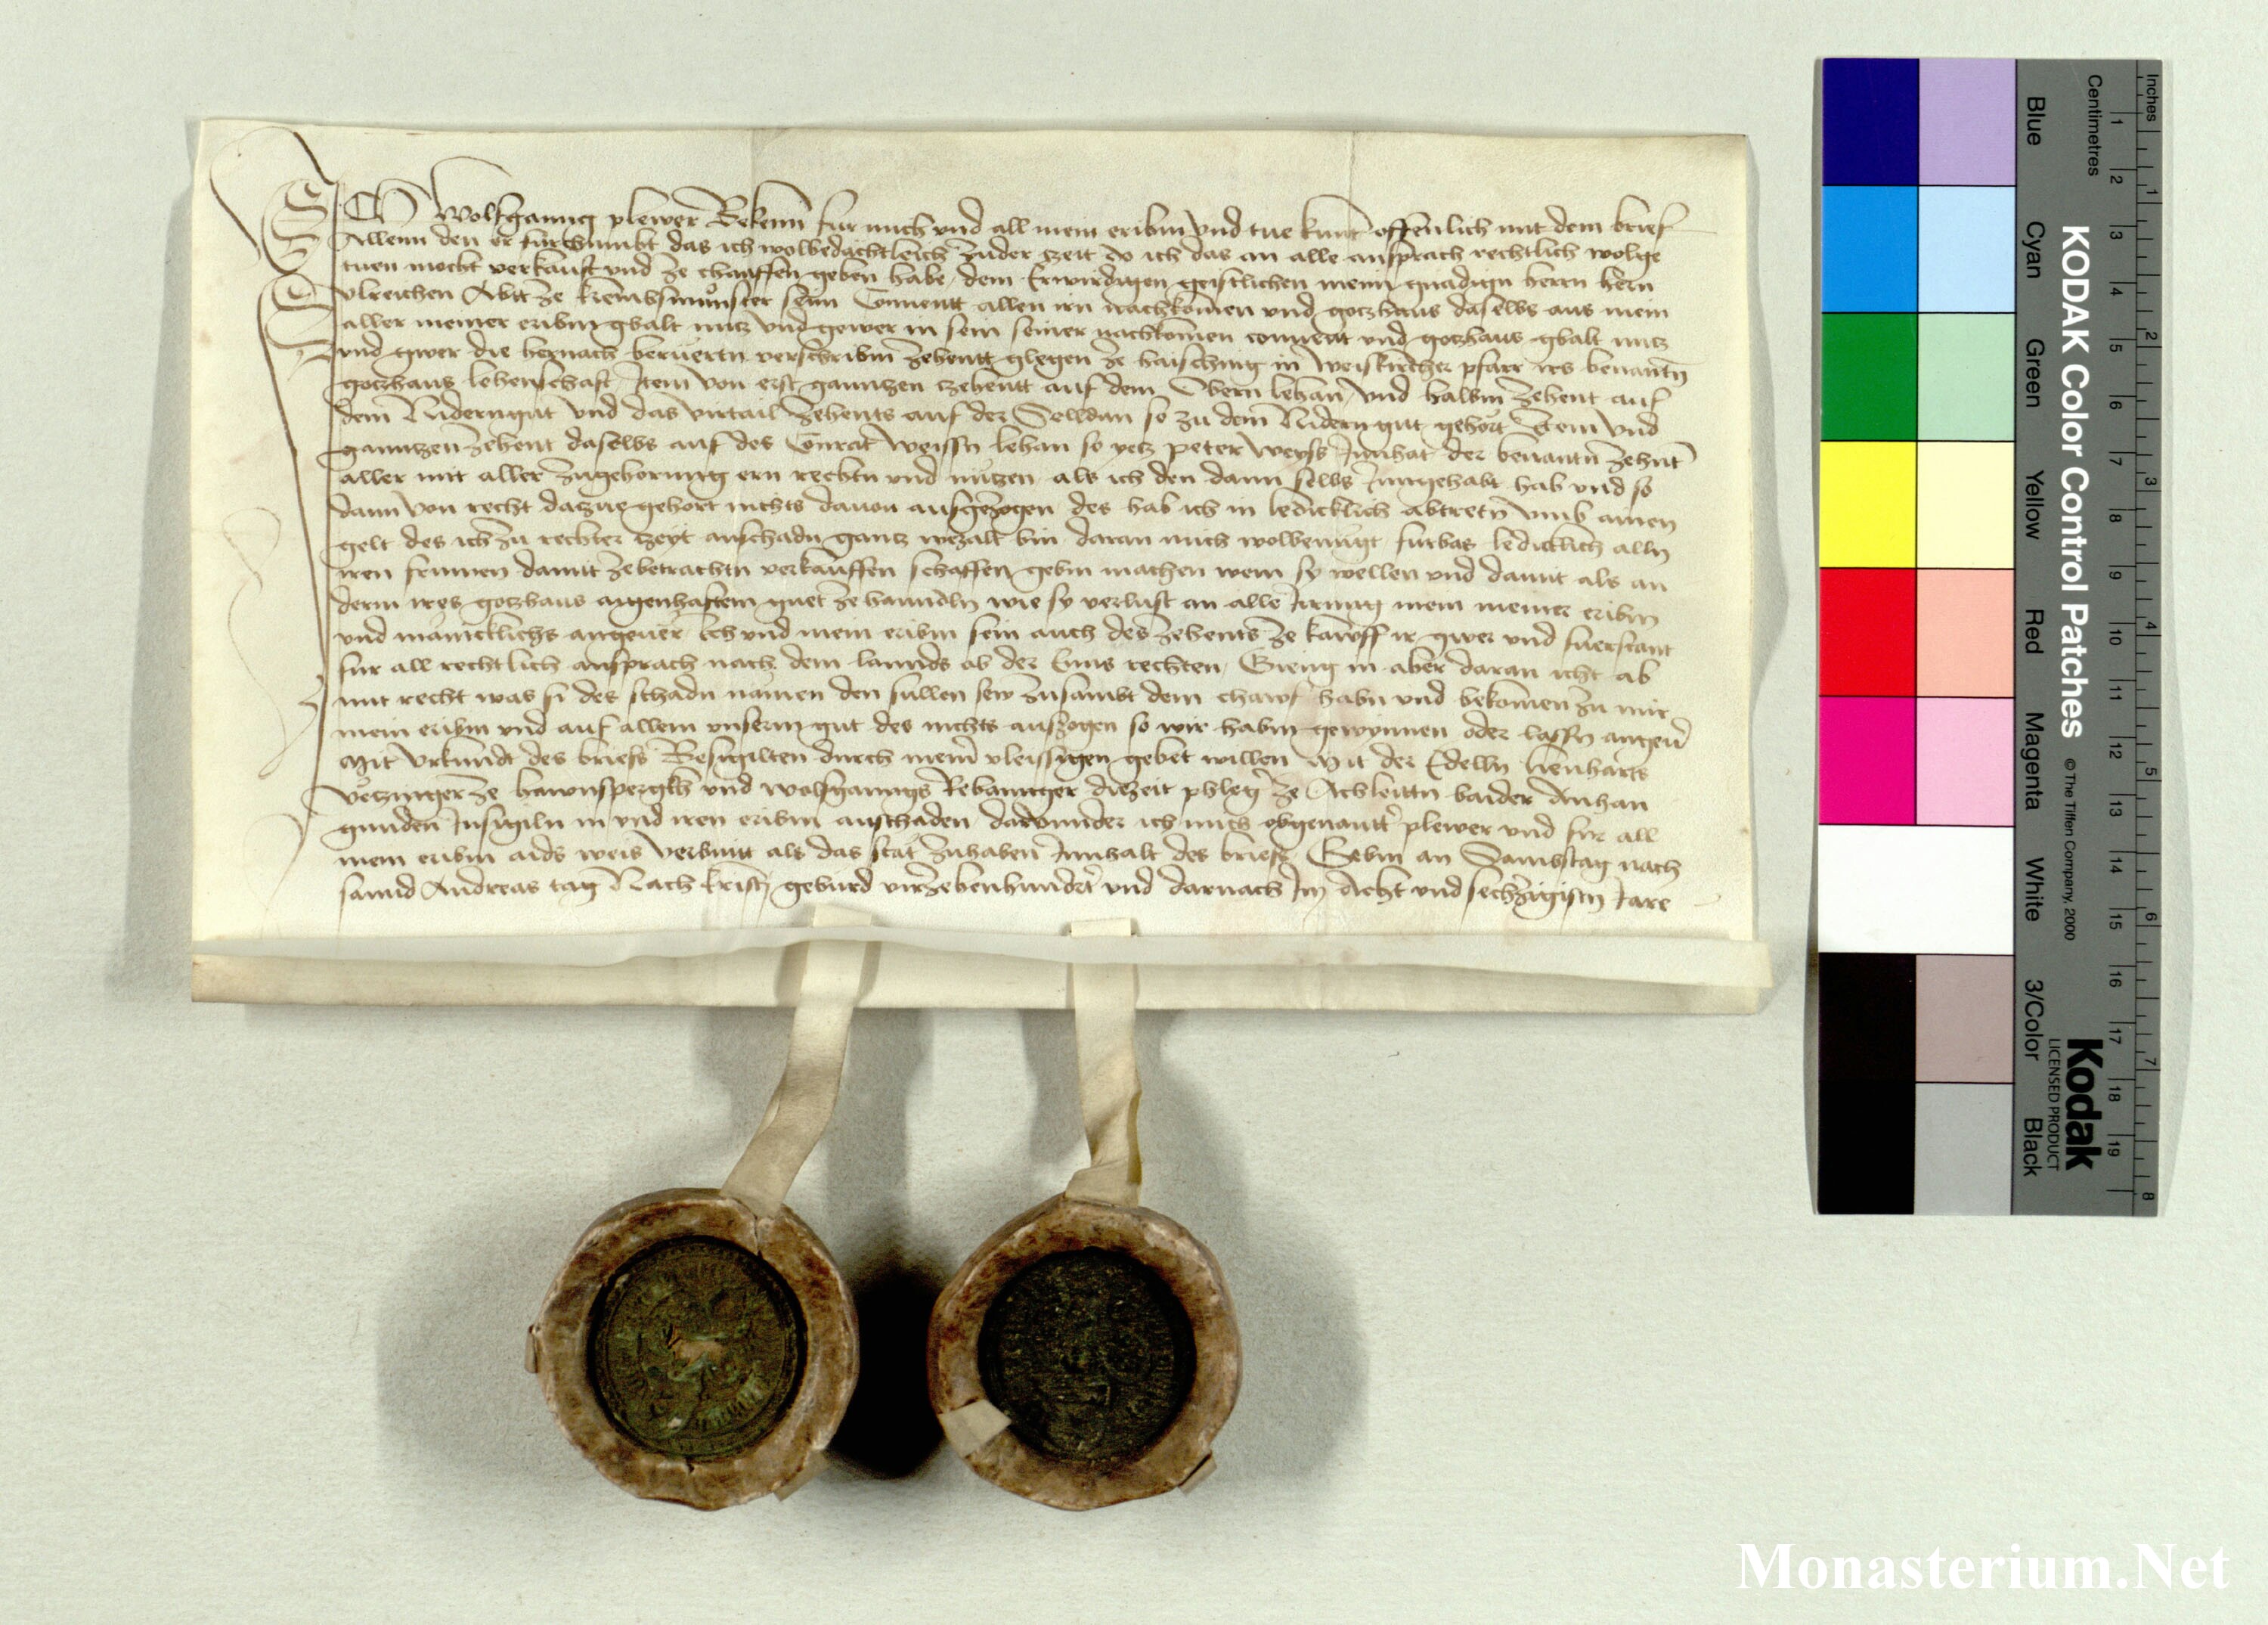 ICH Wolfganng plewer Bekenn fur mich vnd all mein eribm vnd tue kunt offenlich mit dem brief
Allenn den er furchumbt das ich wolbedachtleich zuder czeit do ich das an alle ansprach rechtlich wolge
tuen mocht verkauft vnd ze chauffen geben habe dem Erwirdigen geistlichen meim gnadign herrn hern
Vlreichen Abtt ze krembsmunster seim Conuentt allen irn nachkomen vnd goczhaus daselbs aus mein
aller meiner eribm gbalt nucz vnd gewer in sein seiner nachkomen conuent vnd goczhaus gbalt nucz
vnd gwer die hernach beruertn verschribm zehentt glegen ze haisching in Weiskircher pfarr irs benantn
goczhaus lehenschaft Item von erst ganntzen zehentt auf dem Obern lehan vnd halbm zehent auf
dem Niderngut vnd das virtail zehents auf der Selldan so zu dem Nidern gut gehort Item vnd
ganntzen zehent daselbs auf des Conrat Weissn lehan so yetz peter Weyss Innhat der benantn zehnt
aller mit aller zugehorung ern rechtn vnd nutzen als ich den dann selbs Inngehabt hab vnd so
dann von recht darzue gehort nichts dauon ausgezogen des hab ich in ledicklich abtretn vmb ainen
gelt des ich zu rechter czeyt anschadn gantz bezalt bin daran mich wolbenugt furbas ledicklich alln
iren frumen damit zebetrachtn verkauffen schaffen gebm machen wem sy wellen vnd damit als an
derm ires goczhaus aigenhaftem guet ze hanndln wie sy verlust an alle Irrung mein meiner eribm
vnd manicklichs angeuer Ich vnd mein eribm sein auch des zehents ze kawff ir gwer vnd fuerstant
fur all rechtlich ansprach nach dem lannds ob der Enns rechten Gieng in aber daran icht ab
mit recht was si des schadn namen den sullen sew zusambt dem chawf habn vnd bekomen zu mir
mein eribm vnd auf allem vnserm gut des nichts auszogen so wir habm gewynnen oder lassn angeuer
Mit vrkundt des briefs Besigilten durch meiner vleissigen gebet willen Mit der Edelln lienharts
Vetzinger ze bawnspergkh vnd wolfganngs Rebanntger diezeit phleger ze Achleittn baider Anhan
gunden Insigiln in vnd iren eribm anschaden darvnnder ich mich obgenantter plewer vnd fur all
mein eribm aids weis verbintt als das stat zuhaben Innhalt des briefs Gebm an Sambstag nach
sannd Andreas tag Nach kristi geburd vierzehenhundert vnd darnach Im Acht vnd sechzigistn Jare
KODAK Color Control Patches
© The Tiffen Company, 2000
Kodak
LICENSED PRODUCT
Inches
1 2 3 4 5 6 7 8
Centimetres
1 2 3 4 5 6 7 8 9 10 11 12 13 14 15 16 17 18 19
Blue
Cyan
Green
Yellow
Red
Magenta
White
3/Color
Black
Monasterium.Net